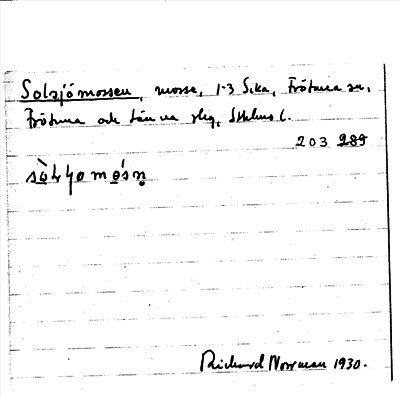 Solsjömossen, mosse, 1-3 Sika, Frötuna sn,
Frötuna och Länna skg, Sthlms l.
203 289
Richard Norrman 1930.